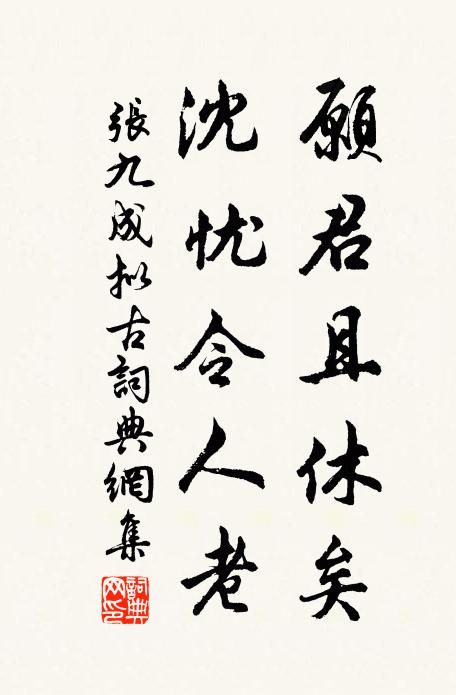 願君且休矣
沈忧令人老
張九成拟古詞典網集
詞典網印